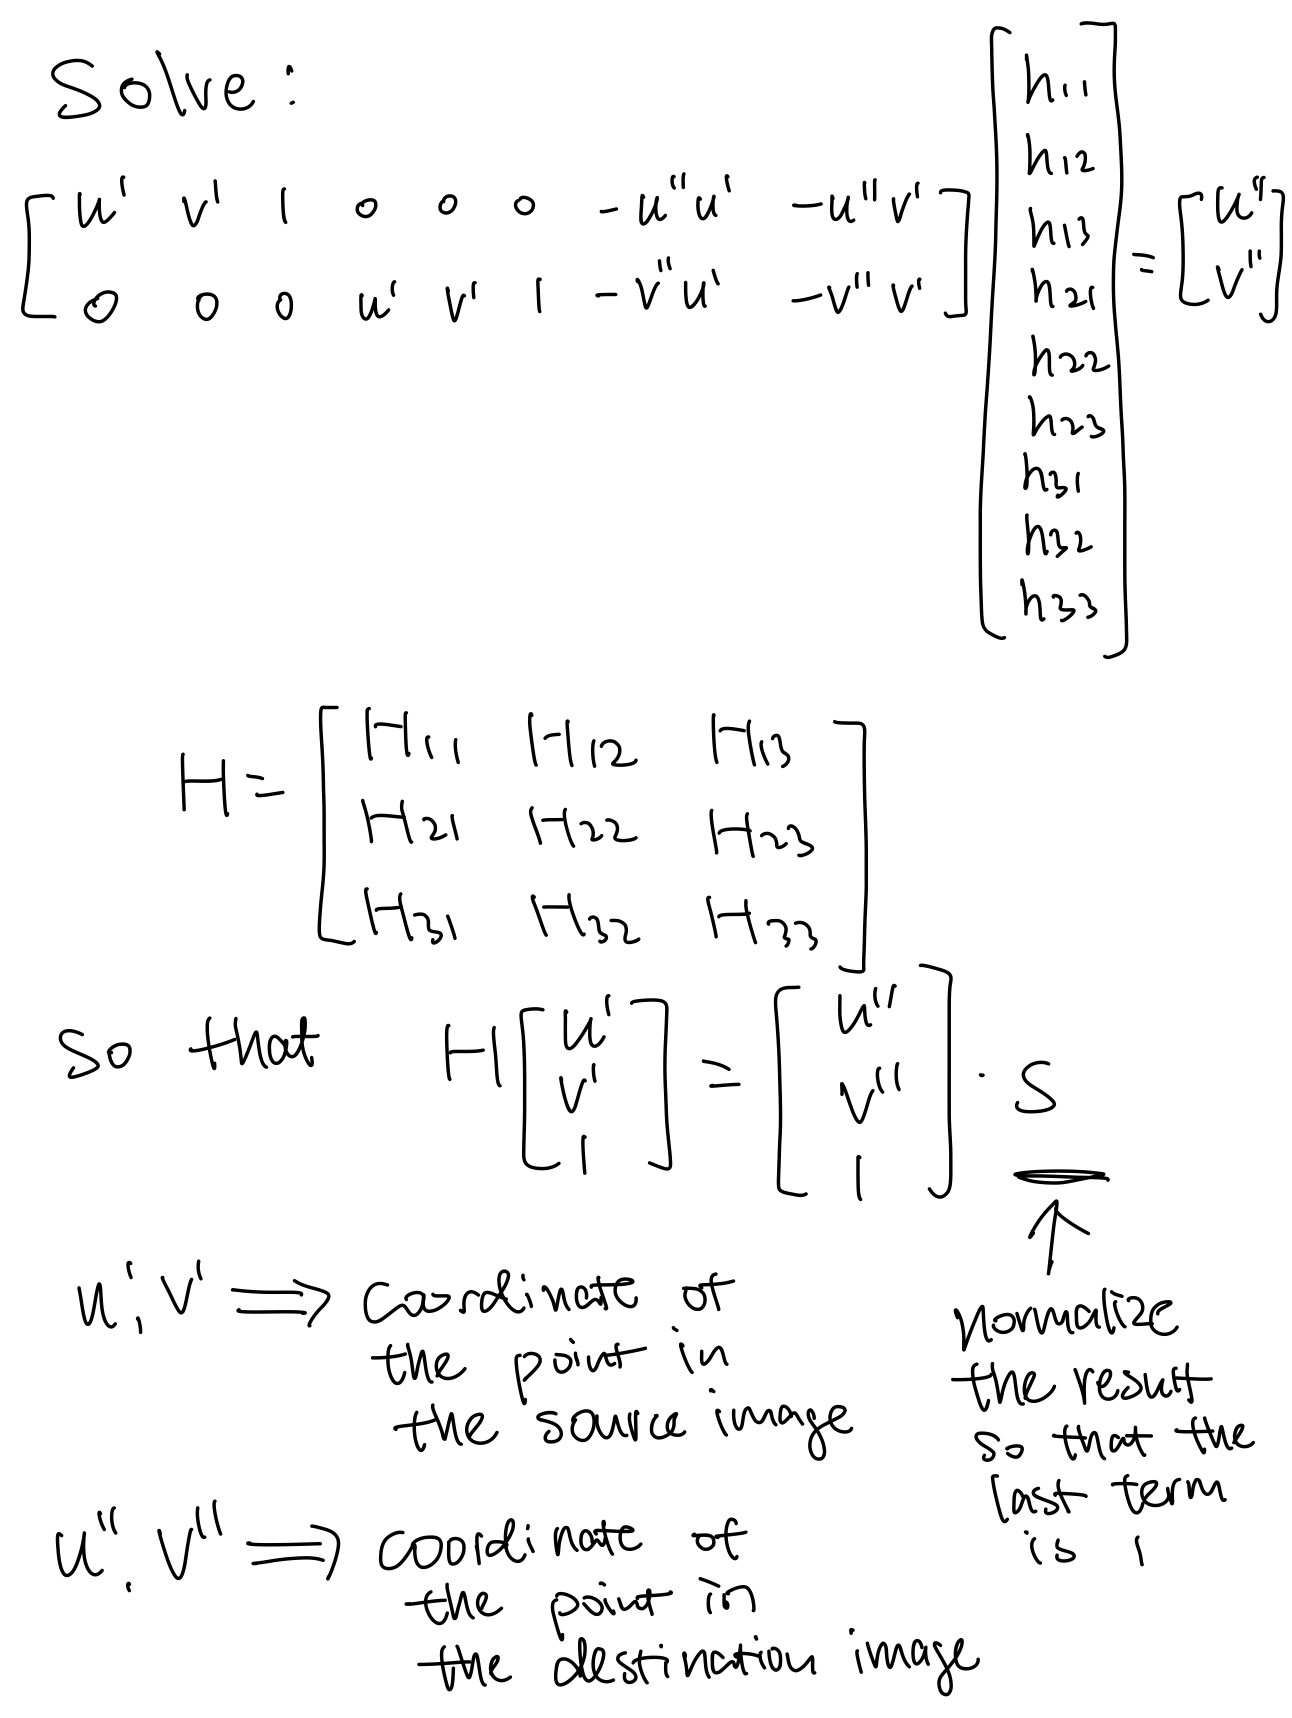 Solve:
[ u' v' 1 0 0 0 -u''u' -u''v' ] [ h11 = [ u''
0 0 0 u' v' 1 -v''u' -v''v' ] h12 v'' ]
h13
h21
h22
h23
h31
h32
h33 ]
H = [ H11 H12 H13
H21 H22 H23
H31 H32 H33 ]
So that H [ u' v' 1 ] = [ u'' v'' 1 ] · S
u', v' ⟹ coordinate of
the point in
the source image
↑
normalize
the result
so that the
last term
is 1
u'', v'' ⟹ coordinate of
the point in
the destination image